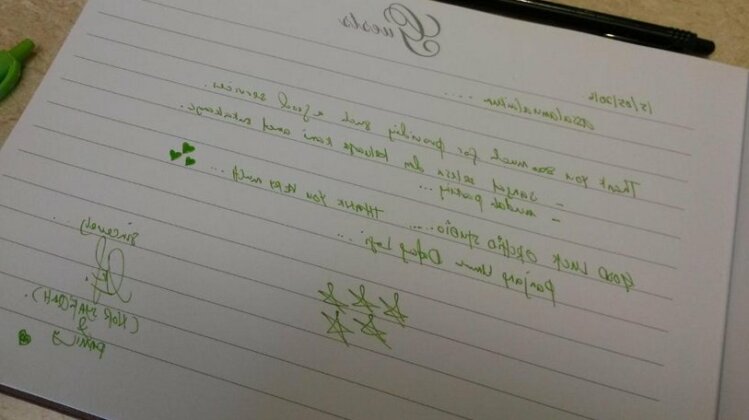 Guests
15/05/2016
Assalamualaikum ....
Thank you soo much for providing such a good services.
- sangat selesa dm keluarga kami and
- mudah parking ...
GOOD LUCK ORCHID STUDIO.... THANK YOU VERY MUCH...
panjang umur Datang Lagi ...
sincerely
(NOR SHAFIQAH)
&
FAMILY